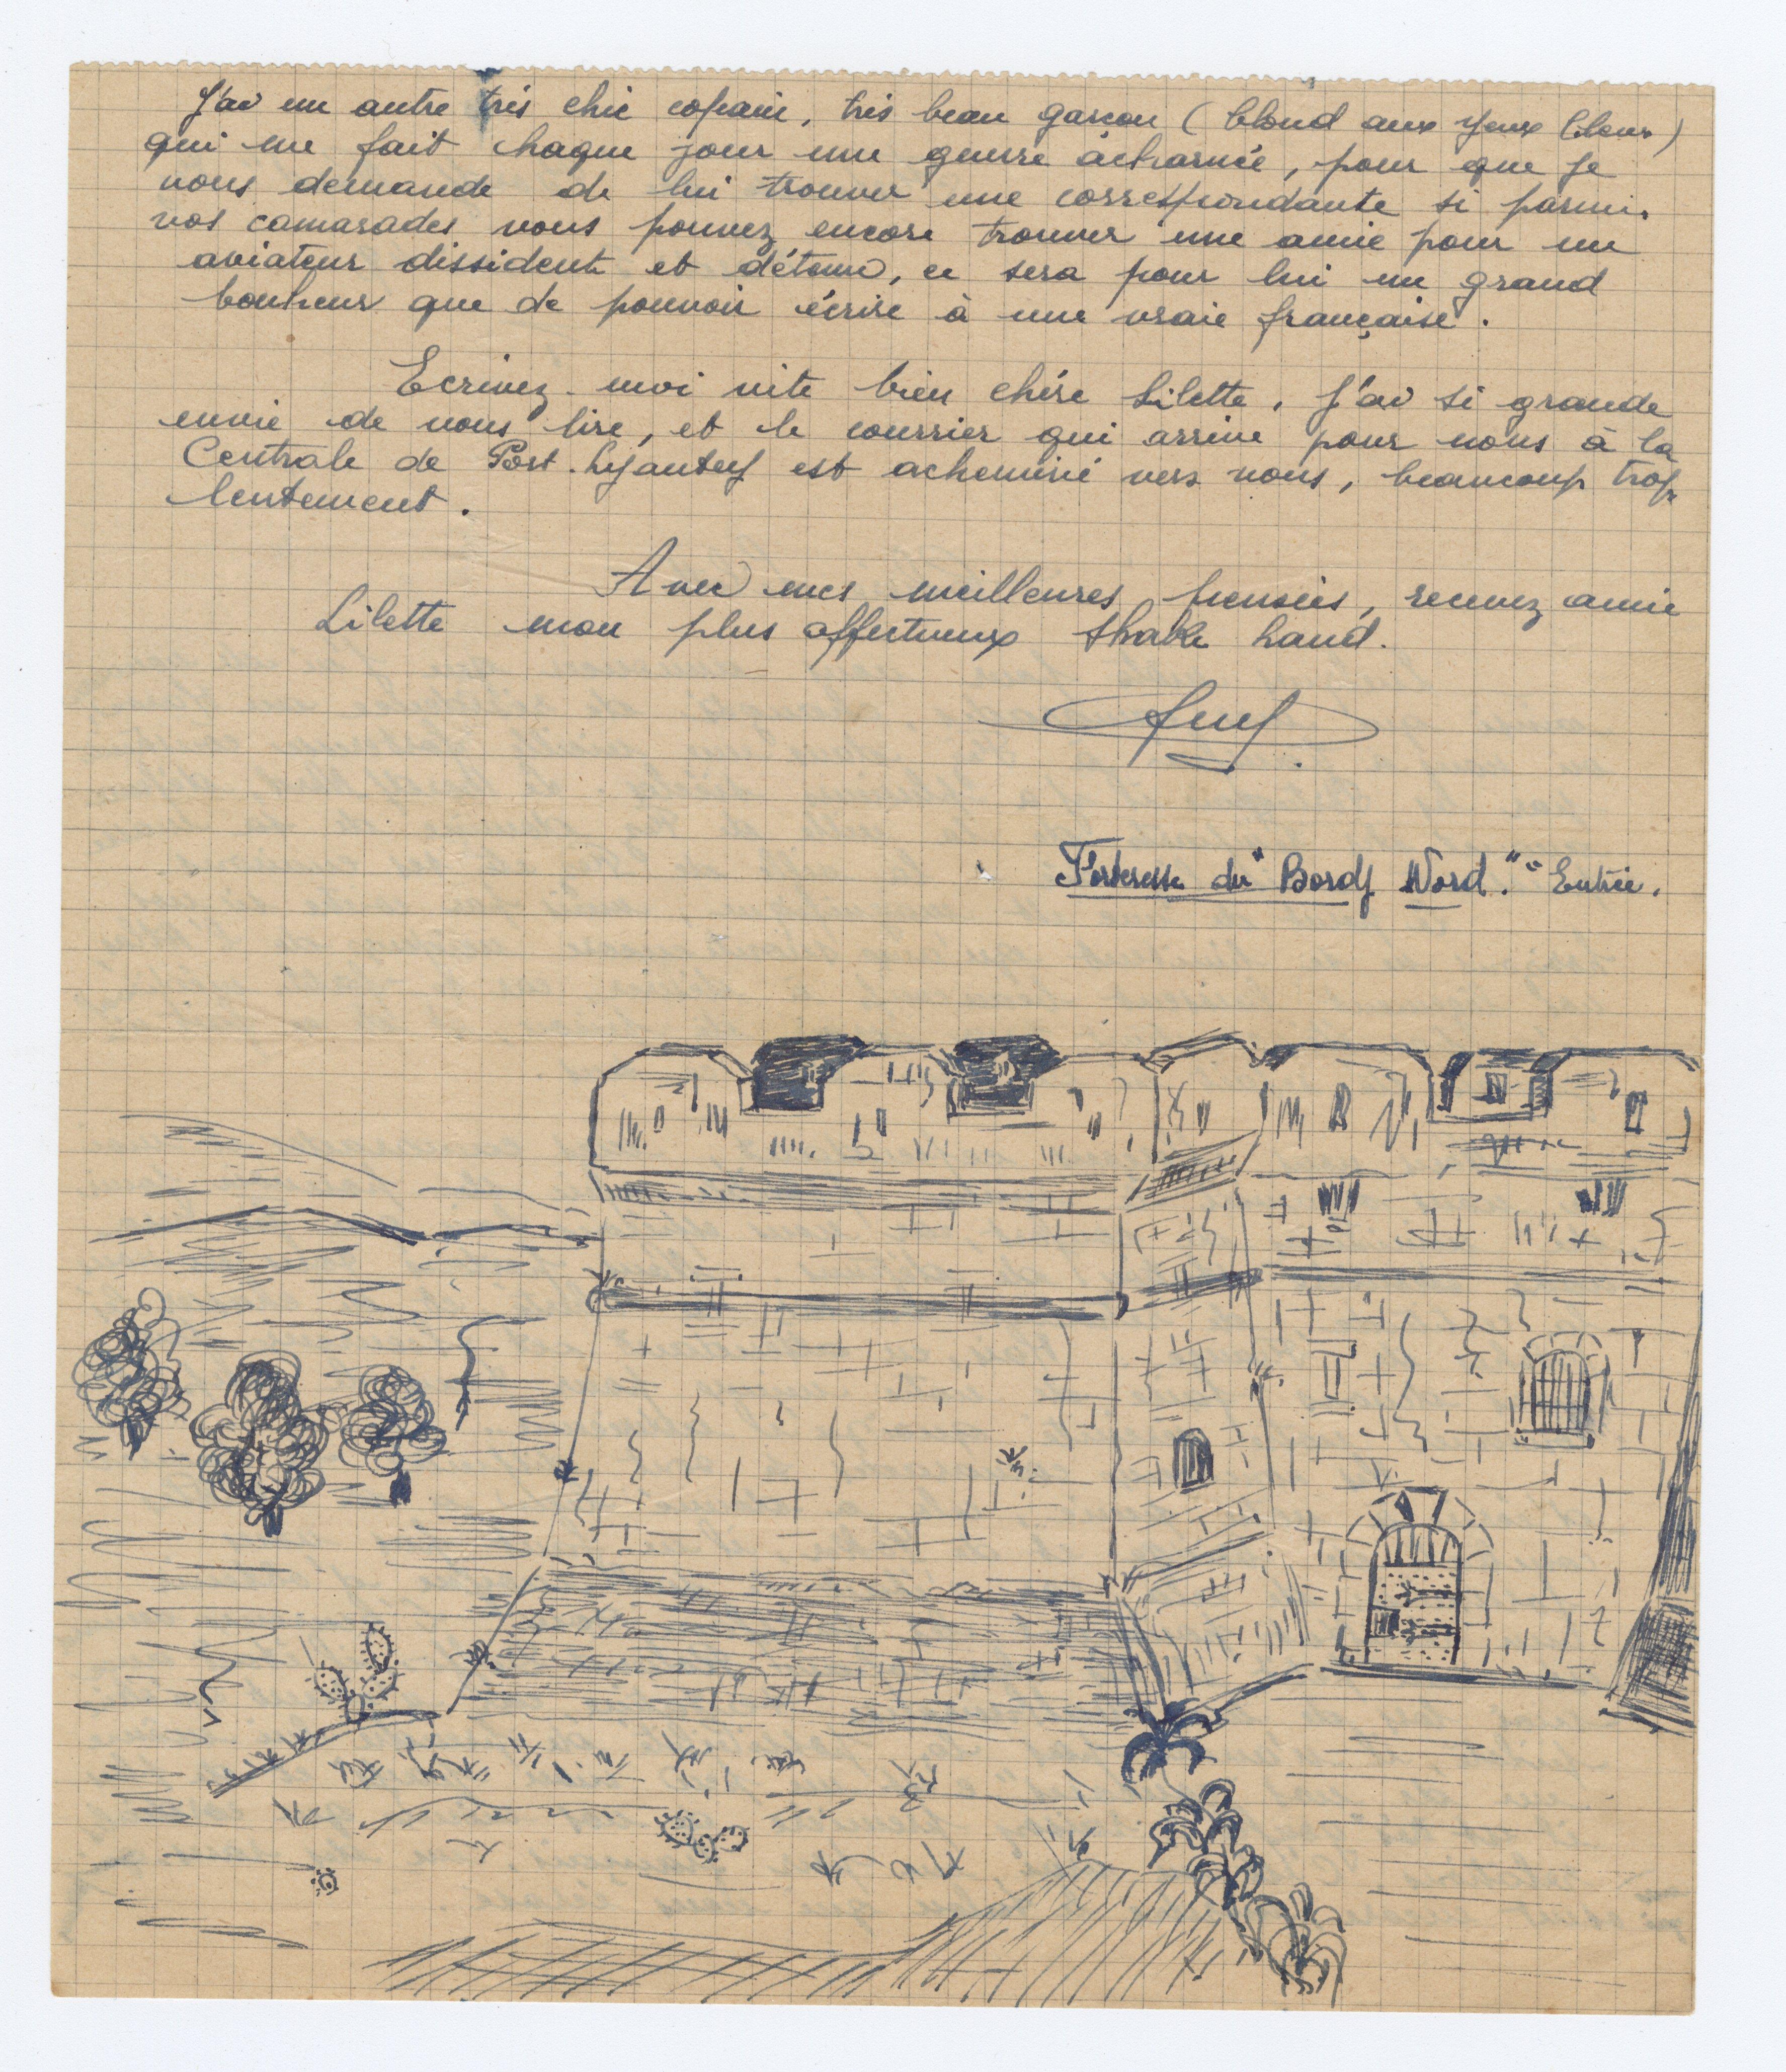 J'ai un autre très chic copain, très beau garçon (blond aux yeux bleus)
qui me fait chaque jour une guerre acharnée, pour que je
vous demande de lui trouver une correspondante si parmi
vos camarades vous pouvez encore trouver une amie pour un
aviateur dissident et détenu, ce sera pour lui un grand
bonheur que de pouvoir écrire à une vraie française.
Ecrivez-moi vite bien chère Lilette, j'ai si grande
envie de vous lire, et le courrier qui arrive pour nous à la
Centrale de Port-Lyautey est acheminé vers nous, beaucoup trop
lentement.
Avec mes meilleures pensées, recevez amie
Lilette mon plus affectueux shake hand.
Forteresse du "Bordj Nord." Entrée.